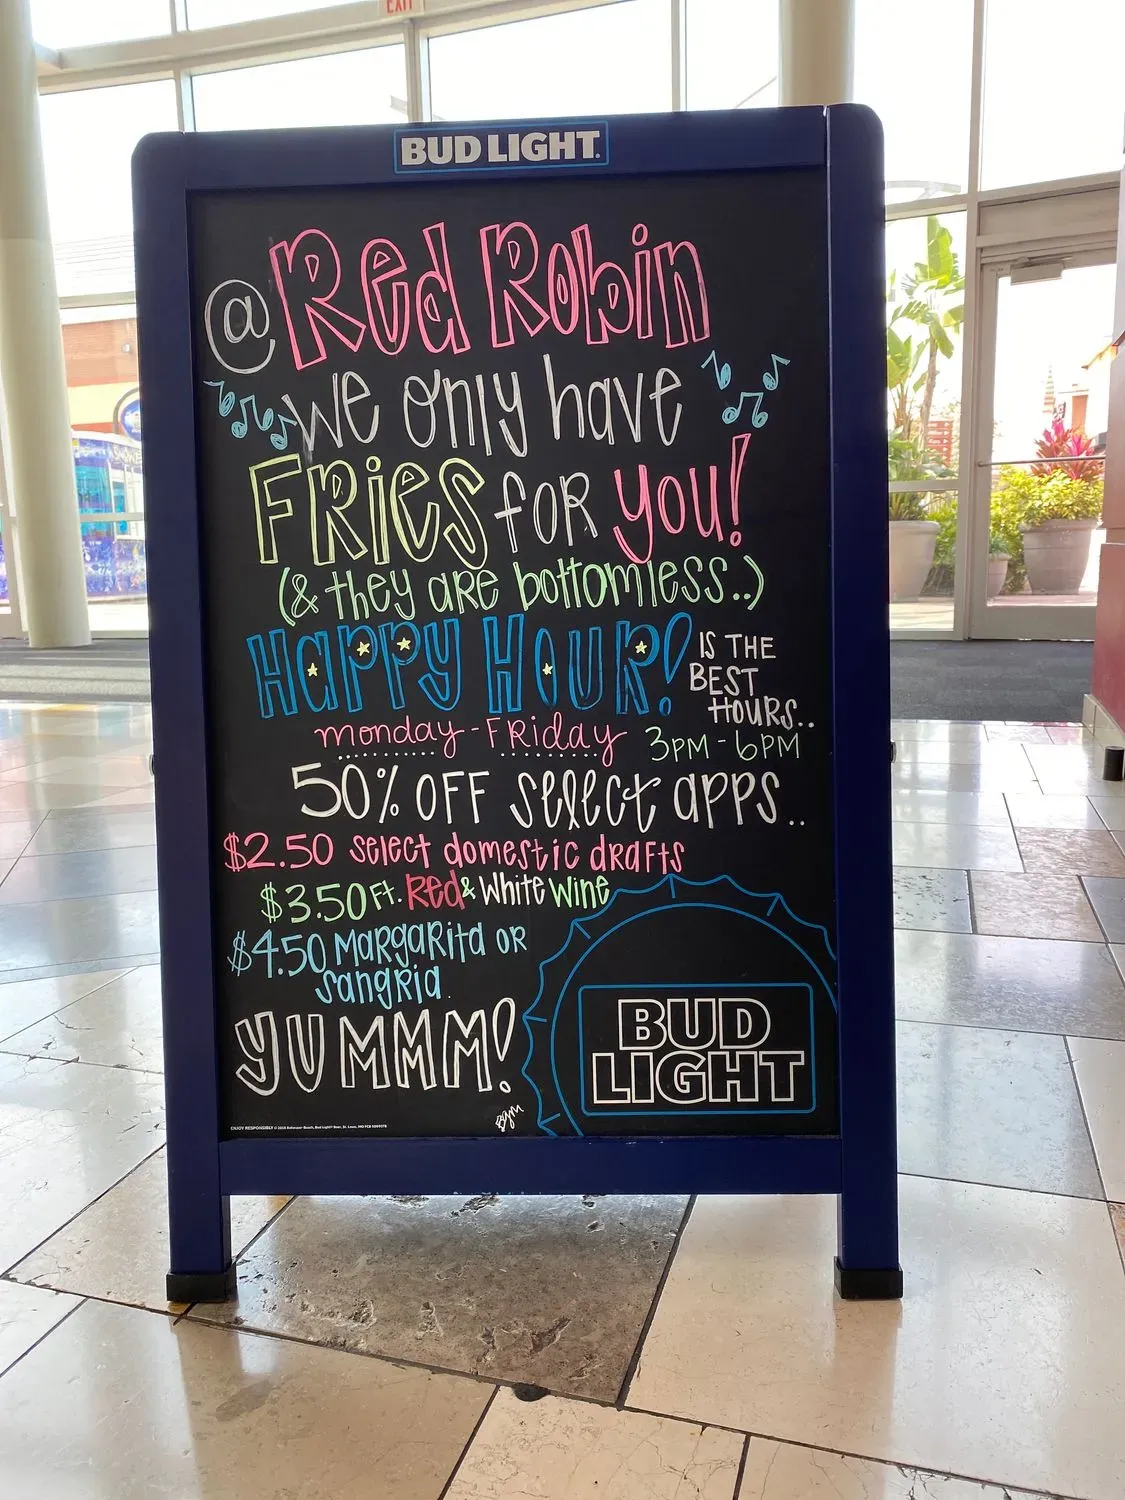 EXIT
BUD LIGHT.
@Red Robin
we only have
FRies for you!
(& they are bottomless..)
Happy HOUR! IS THE
BEST
HOURS..
monday - FRiday 3PM - 6PM
50% OFF select apps..
$2.50 select domestic drafts
$3.50 Ft. Red & White Wine
$4.50 Margarita or
Sangria.
YUMMM!
BUD
LIGHT
bgm